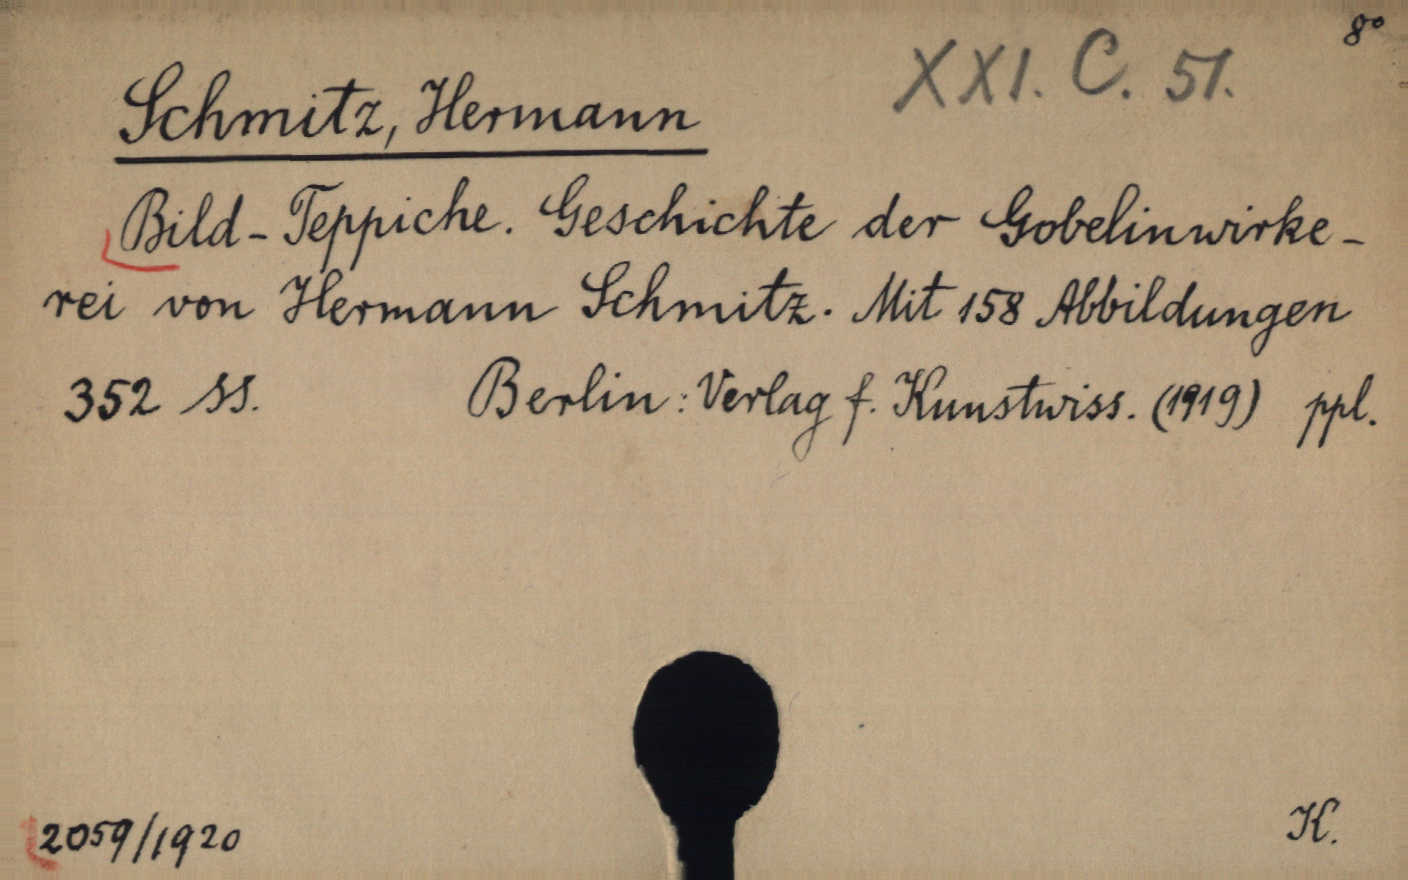 8°
XXI. C. 51.
Schmitz, Hermann
Bild-Teppiche. Geschichte der Gobelinwirke-
rei von Hermann Schmitz. Mit 158 Abbildungen
352 SS. Berlin: Verlag f. Kunstwiss. (1919) ppl.
2059/1920 K.